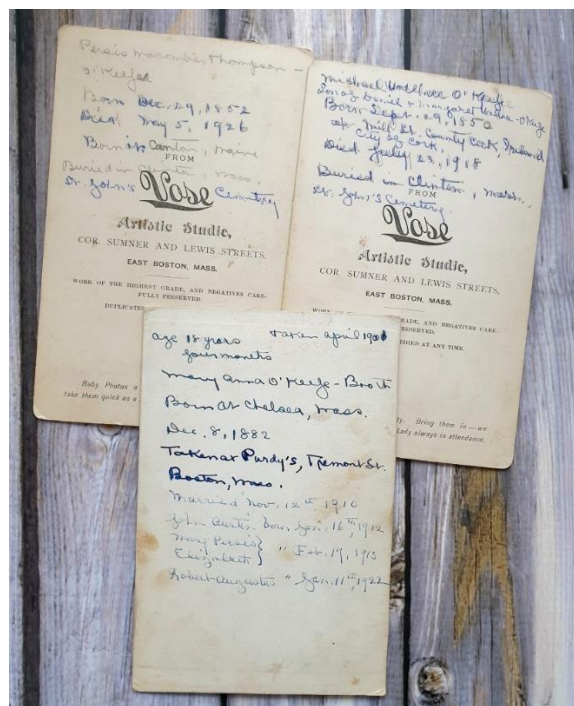 Persis Macomber Thompson -
O'Keefe
Born Dec. 29, 1852
Died May 5, 1926
Born at Canton, Maine.
Buried in Clinton, Mass.
FROM
St. John's Cemetery
Vose
Artistic Studio,
COR. SUMNER AND LEWIS STREETS,
EAST BOSTON, MASS.
WORK OF THE HIGHEST GRADE, AND NEGATIVES CARE-
FULLY PRESERVED.
DUPLICATES
Baby Photos a
take them quick as a
Michael O'Keefe
Son of Daniel & Margaret O'Keefe
Born Sept. 29, 1850
at Mill St. County Cork, Ireland
City of Cork.
Died July 23, 1918
Buried in Clinton, Mass.
FROM
St. John's Cemetery.
Vose
Artistic Studio,
COR. SUMNER AND LEWIS STREETS,
EAST BOSTON, MASS.
GRADE, AND NEGATIVES CARE-
RESERVED.
AT ANY TIME.
ty. Bring them in — we
Lady always in attendance.
age 18 years taken April 1901
four months
Mary Anna O'Keefe - Booth
Born at Chelsea, Mass.
Dec. 8, 1882
Taken at Purdy's, Tremont St.
Boston, Mass.
Married Nov. 12th, 1910
John Curtis Born Jan. 16th, 1912
Mary Persis } " Feb. 19, 1913
Elizabeth }
Robert Augustus " Jan. 11th, 1922